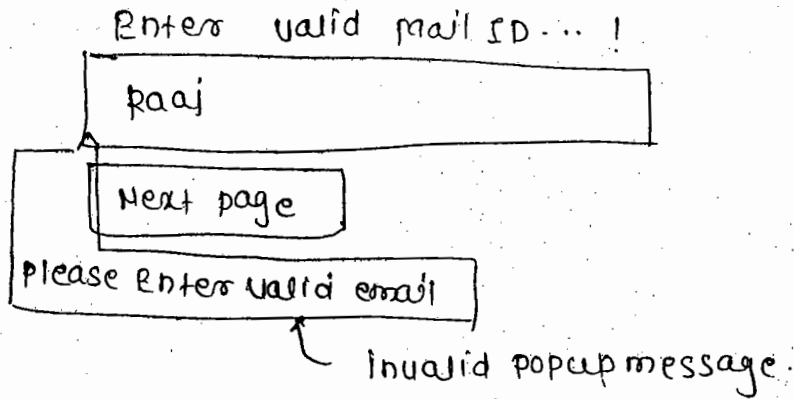 Enter valid Mail ID.... !
Raaj
Next page
Please Enter valid email
invalid popup message.